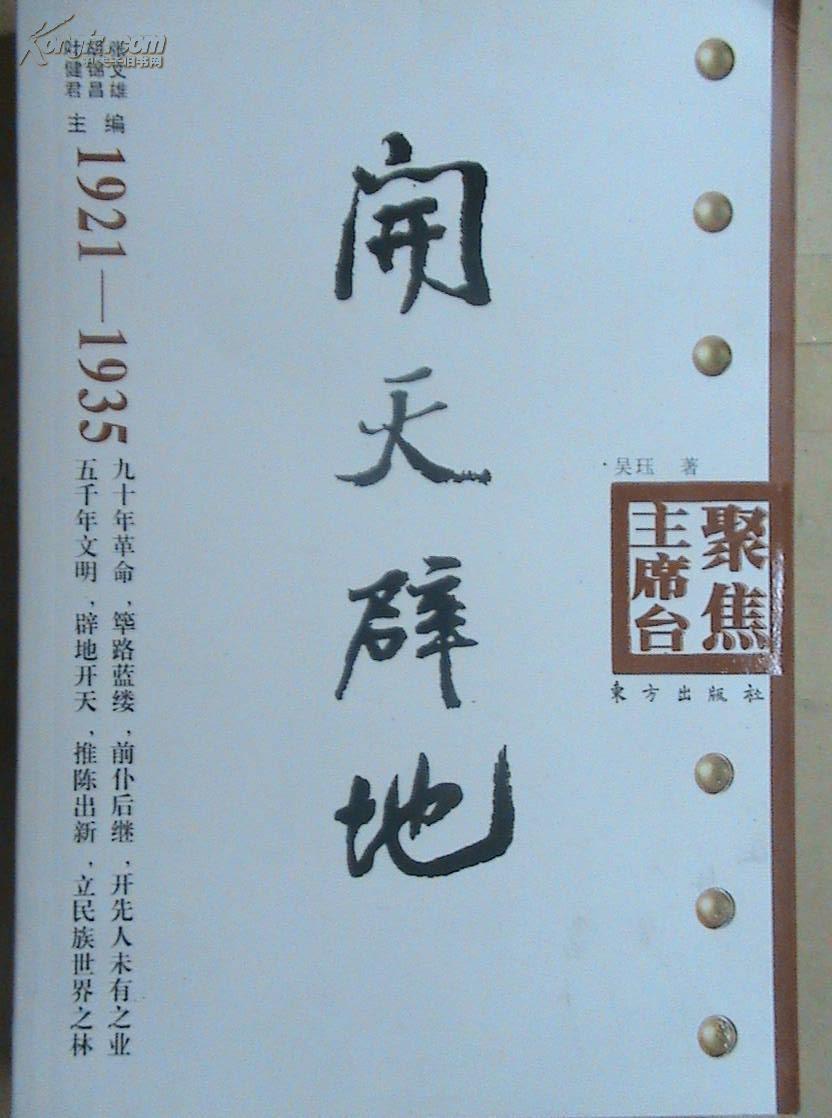 Kongfz.com
孔夫子旧书网
张文雄
胡锦昌
叶健君
主编
1921—1935
九十年革命，筚路蓝缕，前仆后继，开先人未有之业
五千年文明，辟地开天，推陈出新，立民族世界之林
開天辟地
吴珏 著
聚焦
主席台
東方出版社